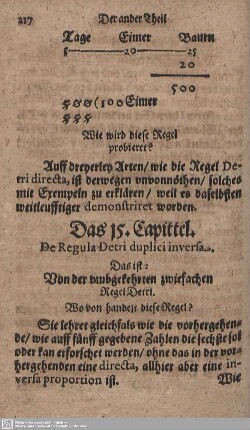 217 Der ander Theil
Tage Eimer Baurn
5 — 20 — 25
20
500
555 (100 Eimer
555
Wie wird diese Regel
probieret?
Auff dreyerley Arten / wie die Regel De-
tri directa, ist derwegen unvonnöthen / solches
mit Exempeln zu erklären / weil es daselbsten
weitleufftiger demonstriret worden.
Das 15. Capittel.
De Regula Detri duplici inversa.
Das ist:
Von der umbgekehrten zwiefachen
Regel Detri.
Wo von handelt diese Regel?
Sie lehret gleichfals wie die vorhergehen-
de / wie auff fünff gegebene Zahlen die sechste sol
oder kan erforschet werden / ohne das in der vor-
hergehenden eine directa, allhier aber eine in-
versa proportion ist. Wie